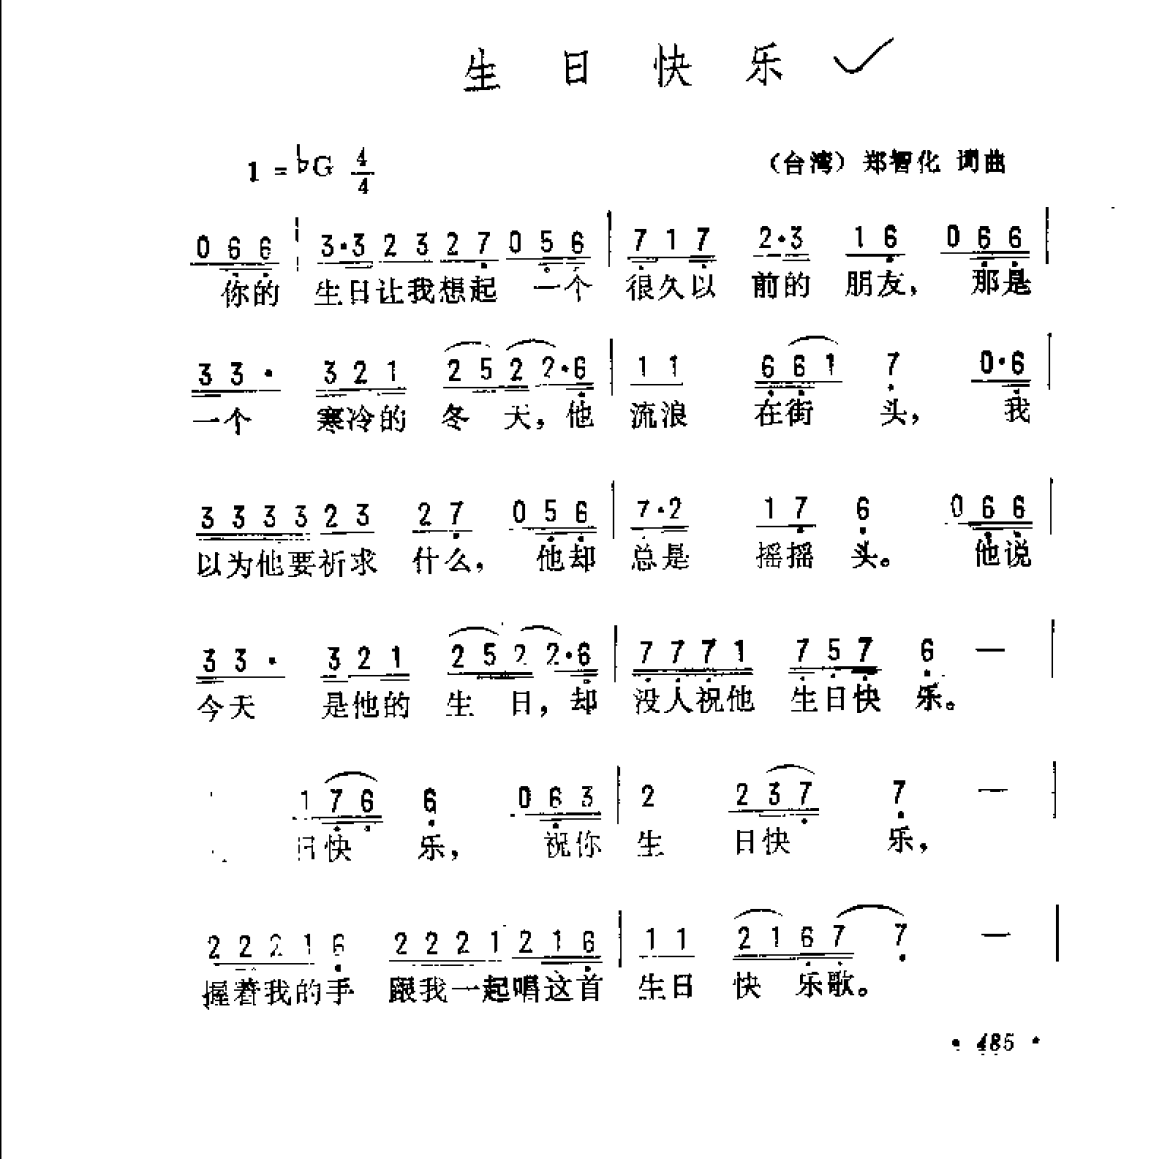 生日快乐
1=♭G 4/4 （台湾）郑智化 词曲
0 6 6 | 3·3 2 3 2 7 0 5 6 | 7 1 7 2·3 1 6 0 6 6 |
你的 生日让我想起 一个 很久以 前的 朋友， 那是
3 3 · 3 2 1 2 5 2 2·6 | 1 1 6 6 1 7 0·6 |
一个 寒冷的 冬 天，他 流浪 在街 头， 我
3 3 3 3 2 3 2 7 0 5 6 | 7·2 1 7 6 0 6 6 |
以为他要祈求 什么， 他却 总是 摇摇 头。 他说
3 3 · 3 2 1 2 5 2 2·6 | 7 7 7 1 7 5 7 6 — |
今天 是他的 生 日，却 没人祝他 生日快 乐。
1 7 6 6 0 6 3 | 2 2 3 7 7 — |
日快 乐， 祝你 生 日快 乐，
2 2 2 1 6 2 2 2 1 2 1 6 | 1 1 2 1 6 7 7 — |
握着我的手 跟我一起唱这首 生日 快 乐歌。
· 485 ·